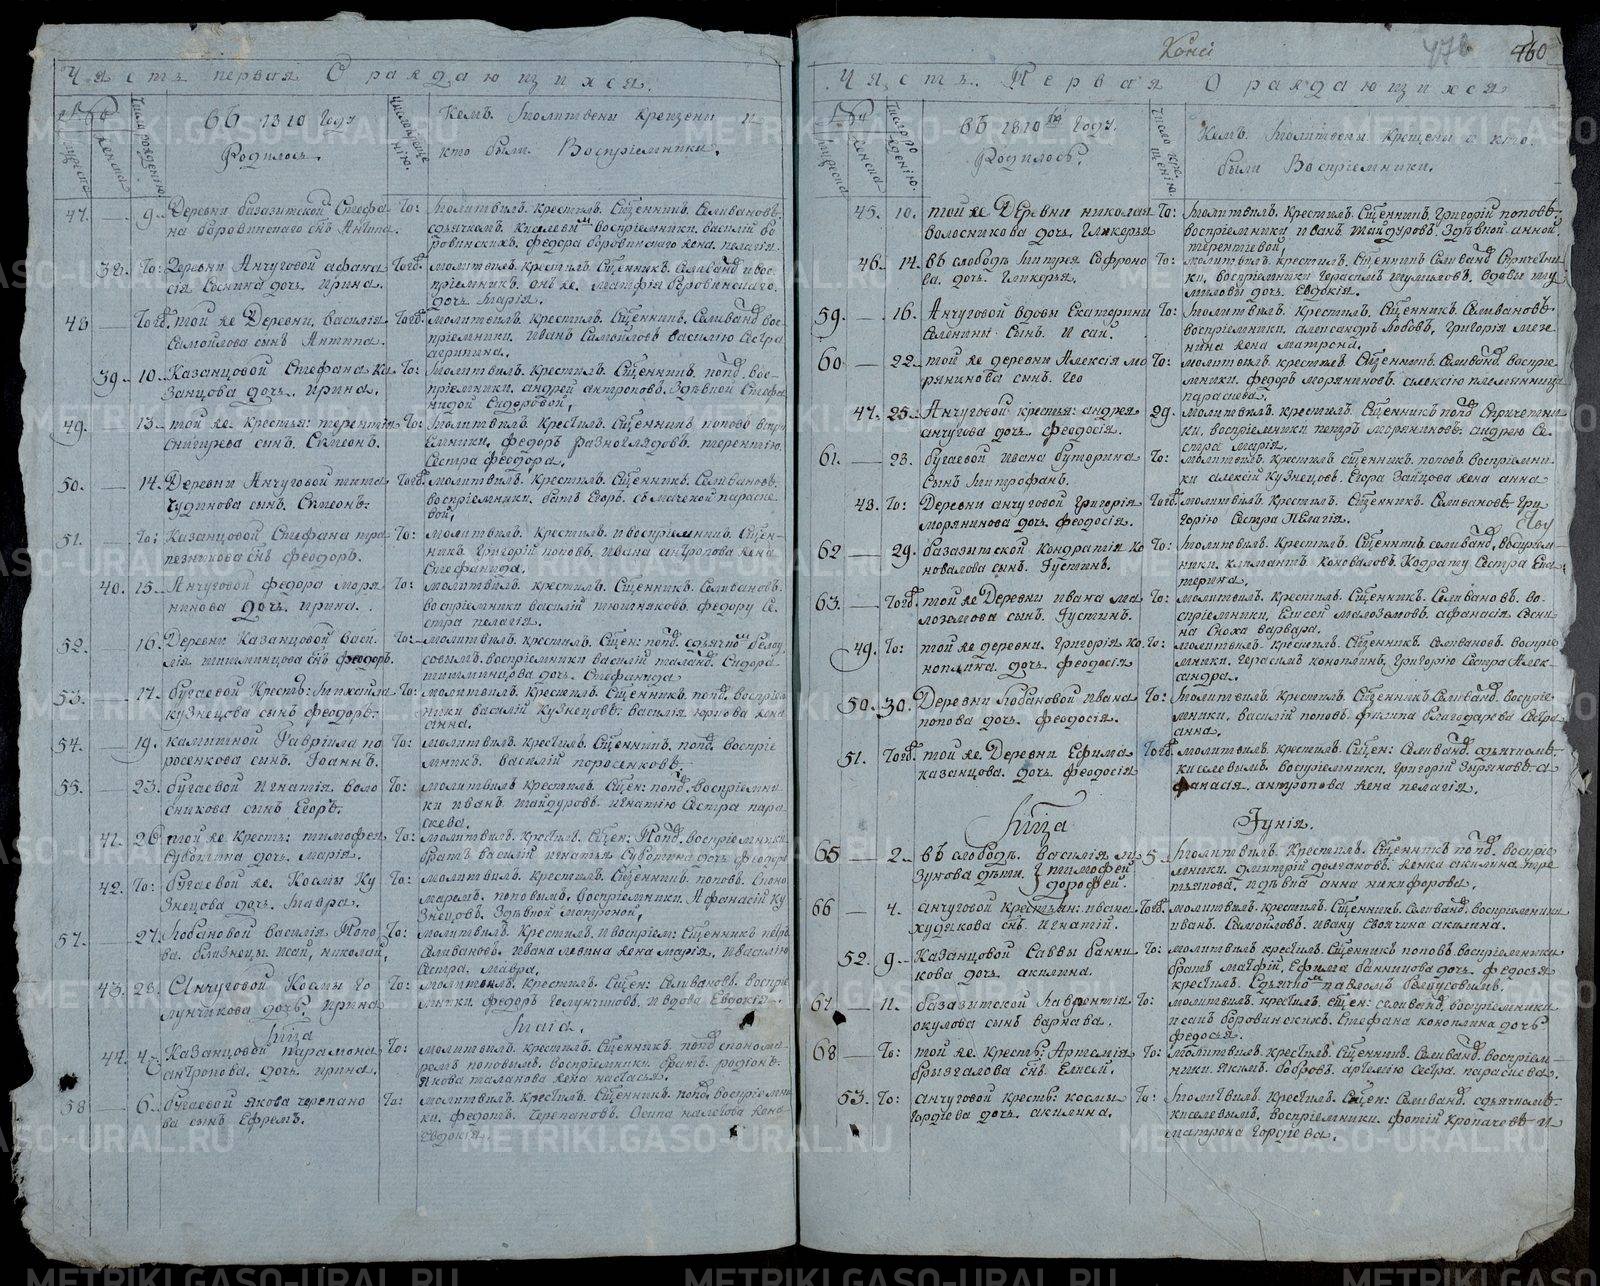 Часть первая О раждающихся.
въ 1810 Году
Родилось.
Кемъ молитвени крещени и
кто были Воспріемники.
47. 9. Деревни базаитской Стефа
на боровинскаго снъ Антипа.
То: молитвилъ. крестилъ. Сщенникъ. Селивановъ.
воспріемники. василій бо
ровинскихъ. федора боровинскаго жена. пелагія.
38. То: Деревни Анчуговой афана
сія Соснина дочь. Ирина.
Тогд. молитвилъ. крестилъ. Сщенникъ. Селиванд и вос
пріемникъ. онъ же. матфія боровинскаго.
дочь марія.
48 Тогд. той же Деревни. василія
Самойлова сынъ Антипа.
Тогд. молитвилъ. крестилъ. Сщенникъ. Селиванд вос
пріемники. иванъ Самойловъ василию Сестра
агрипина.
39. 10. Казанцовой Стефана ка
занцова дочь. Ирина.
То: молитвилъ. Крестилъ. Сщенникъ. попд. вос
пріемники. андрей антроповъ. Стефа
нидой Сидоровой,
49. 13. той же. крестья: терентія
Снигирева сынъ. Симеонъ.
То: молитвилъ. крестилъ. Сщенникъ поповъ воспрі
емники, федоръ терентію
Сестра феодора,
50. 14. Деревни Анчуговой тита
Чудинова сынъ. Симеонъ.
Тогд. молитвилъ. крестилъ. Сщенникъ. Селивановъ.
воспріемники. братъ Егоръ. съ мачехой параске
вой,
51. То: Казанцовой Стефана тра
пезникова снъ феодоръ.
То: молитвилъ. Крестилъ. и воспріемникъ. Сщен
никъ. Григорій поповъ. ивана антропова жена
Стефанида.
40. 15. Анчуговой федора моря
нинова дочь. ирина.
То: молитвилъ. крестилъ. Сщенникъ. Селивановъ.
воспріемники василій тюшняковъ. федору Се
стра пелагія.
52. 16. Деревни Казанцовой васи
лія титминцова снъ феодоръ.
То: молитвилъ. крестилъ. Сщен: попд. бѣлоу
совымъ. воспріемники василій таланд. Сидора
титминцова дочь. Стефанида
53. 17. бугаевой Кресть: михаила
кузнецова сынъ феодоръ.
То: молитвилъ. Крестилъ. Сщенникъ. попд. воспріем
ники василій кузнецовъ. василія юриова жена
анна.
54. 19. камышной Гавріила по
росенкова синъ. Іоаннъ.
То: молитвилъ. крестилъ. Сщенникъ. попд. воспріе
мникъ. василій поросенковъ
55. 23. бугаевой Игнатія. воло
сникова сынъ Егоръ.
То: молитвилъ крестилъ. Сщен: попд. воспріемни
ки иванъ тайдуровъ. игнатію Сестра пара
скева.
41. 26 той же. кресть: тимофея
Суботина дочь. марія.
То: молитвилъ. крестилъ. Сщен: Попд. воспріемники
братъ василій игнатья Суботина дочь феодора
42. То: бугаевой же. Космы Ку
знецова дочь. Мавра.
То: молитвилъ. крестилъ. Сщенникъ. поповъ. Споно
маремъ. поповымъ. воспріемники. Афанасій ку
знецовъ. матроной,
57. 27. Лобановой василія Попо
ва. близнецы. исай, николай,
То: молитвилъ. Крестилъ, и воспріем: Сщенникъ петръ
Селивановъ. ивана левина жена марія, и василію
Сестра. мавра,
43. 28. Анчуговой Космы Го
лунчикова дочь. ирина
То: молитвилъ. крестилъ. Сщен: Селивановъ. воспріе
мники. федоръ голунчиковъ, Евдокія.
Міца Маія.
44. 4. Казанцовой парамона
антропова. дочь. ирина.
То: молитвилъ. крестилъ. Сщенникъ. попд спонома
ремъ поповымъ. воспріемники. братъ. родіонъ.
якова таланова жена настасья.
58 6. бугаевой якова черепано
ва сынъ Ефремъ.
То: молитвилъ. крестилъ. Сщенникъ. попд. воспріемни
ки. федотъ. Черепановъ. Осипа налетова жена
Евдокія.
460
Часть. Первая О раждающихся
въ 1810м Году.
Родилось.
Кемъ молитвени Крещени и кто.
были Воспріемники.
45. 10. той же Деревни николая
волосникова дочь. Гликерья
То: молитвилъ. крестилъ. Сщенникъ. Григорій поповъ.
воспріемники иванъ тайдуровъ. анной
терентіевой
46. 14. въ слободѣ Митрея Софроно
ва. дочь. Гликерья.
То: молитвилъ. крестилъ. Сщенникъ Селиванд Спричетни
ки, воспріемники герасимъ шумиловъ. вдовы шу
миловы дочь. Евдокія.
59. 16. Анчуговой вдовы Екатерини
Селенини Сынъ. Исаи.
То: молитвилъ. крестилъ. Сщенникъ. Селивановъ.
воспріемники. александръ лобовъ. григорія меж
нина жена матрона.
60 22. той же деревни Алексія мо
рянинова сынъ. Гео
То: молитвилъ крестилъ. Сщенникъ. Селиванд. воспріе
мники. федоръ моряниновъ. алексію племянница
параскева.
47. 25. Анчуговой крестья: андрея
анчугова дочь. феодосія.
29. молитвилъ. крестилъ. Сщенникъ попд Спричетни
ки. воспріемники петръ моряниновъ. андрею Се
стра марія.
61. 23. бугаевой ивана буторина
Сынъ Митрофанъ.
То: молитвилъ. крестилъ Сщенникъ. поповъ воспріемни
ки алексій кузнецовъ. Егора Зайцова жена анна
48. То: Деревни анчуговой Григорія
морянинова дочь. феодосія.
Тогд молитвилъ. крестилъ. Сщенникъ. Селивановъ. Гри
горію Сестра Пелагія.
62 29. базаитской кондратія ко
новалова сынъ. Густинъ.
То: молитвилъ. Крестилъ. Сщенникъ. селиванд. воспріем
ники. климантъ коноваловъ. Кодрату Сестра Ека
терина.
63. Тогд. той же Деревни ивана ма
лоземова сынъ. Густинъ.
То: молитвилъ. крестилъ. Сщенникъ. Селивановъ. во
спріемники, Елисей малоземовъ. афанасія Сосни
на Сноха варвара.
49. То: той же деревни. Григорія ко
ноплина. дочь. феодосія
То: молитвилъ. крестилъ. Сщенникъ. Селивановъ. воспріе
мники. герасимъ коноплинъ. Григорію Сестра Алек
сандра.
50. 30. Деревни Лобановой ивана
попова дочь. феодосія.
То: молитвилъ. крестилъ. Сщенникъ Селиванд. воспріе
мники. василій поповъ. филипа благодарева Сестра
анна.
51. Тогд. той же Деревни Ефима
казанцова. дочь. феодосія
Тогд. молитвилъ. крестилъ. Сщен: Селиванд. сдьячкомъ
киселевымъ. воспріемники. григорій зыряновъ. а
фанасія антропова жена пелагія.
Міца Іунія.
65 2. въ слободѣ. василія ми
зунова дѣти. тимофей
дорофей.
5. молитвилъ. Крестилъ. Сщенникъ попд. воспріе
мники. дмитрій долгановъ. женка акилина. тре
тьякова. и дѣвка анна никифорова.
66 4. анчуговой крестьян: ивана
худякова снъ. игнатій.
Тогд. молитвилъ. крестилъ. Сщенникъ. Селиванд. воспріемники
иванъ. Самойловъ. ивану своячина акилина.
52. 9. Казанцовой Саввы банни
кова дочь. акилина.
То: молитвилъ. крестилъ. Сщенникъ поповъ воспріемники
братъ матфій, Ефима банникова дочь. федосья
крестилъ. Сдьячко павломъ бѣлоусовымъ.
67 11. базаитской лаврентія
окулова сынъ варнава.
То: молитвилъ. крестилъ. сщен: селиванд. воспріемники
исаий боровинскихъ. Стефана коноплина дочь
федосія.
68 То: той же. кресть: Артемія
бризгалова снъ Елисей.
То: молитвилъ. крестилъ. Сщенникъ. Селиванд. воспріем
ники. якимъ. бобровъ. артемію Сестра. параскева.
53. То: анчуговой кресть: космы
гордіева дочь. акилина.
То: молитвилъ. Крестилъ. Сщен: Селиванд. сдьячкомъ
киселевымъ, воспріемники. фотій кропачевъ и
матрона Гордіева.
METRIKI.GASO-URAL.RU